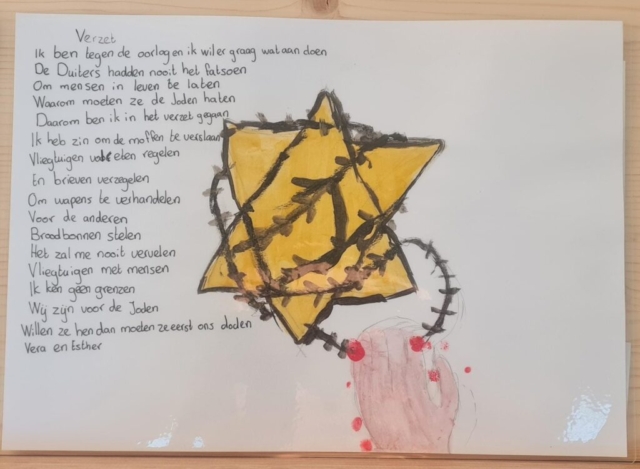 Verzet
Ik ben tegen de oorlog en ik wil er graag wat aan doen
De Duiters hadden nooit het fatsoen
Om mensen in leven te laten
Waarom moeten ze de Joden haten
Daarom ben ik in het verzet gegaan
Ik heb zin om de moffen te verslaan
Vliegtuigen vol eten regelen
En brieven verzegelen
Om wapens te verhandelen
Voor de anderen
Broodbonnen stelen
Het zal me nooit vervelen
Vliegtuigen met mensen
Ik ken geen grenzen
Wij zijn voor de Joden
Willen ze hen dan moeten ze eerst ons doden
Vera en Esther